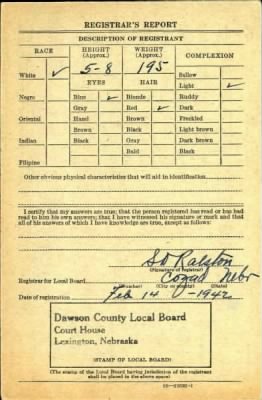 REGISTRAR'S REPORT
DESCRIPTION OF REGISTRANT
RACE HEIGHT (Approx.) WEIGHT (Approx.) COMPLEXION
White ✓ 5-8 195 Sallow
EYES HAIR Light ✓
Negro Blue ✓ Blonde Ruddy
Gray Red ✓ Dark
Oriental Hazel Brown Freckled
Brown Black Light brown
Indian Black Gray Dark brown
Bald Black
Filipino
Other obvious physical characteristics that will aid in identification
I certify that my answers are true; that the person registered has read or has had
read to him his own answers; that I have witnessed his signature or mark and that
all of his answers of which I have knowledge are true, except as follows:
Ralston
(Signature of registrar)
Registrar for Local Board Cozad Nebr
(Number) (City or county) (State)
Date of registration Feb 14 - 1942
Dawson County Local Board
Court House
Lexington, Nebraska
(STAMP OF LOCAL BOARD)
(The stamp of the Local Board having jurisdiction of the registrant
shall be placed in the above space)